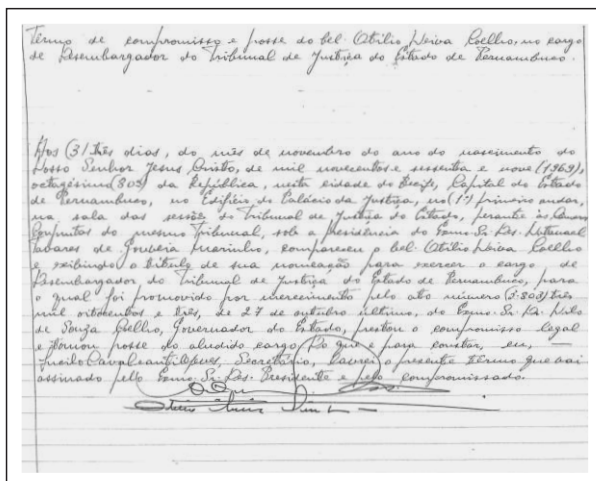 Termo de compromisso e posse do bel. Otílio Neiva Coelho, no cargo
de Desembargador do Tribunal de Justiça do Estado de Pernambuco.
Aos (3) três dias, do mês de novembro do ano do nascimento do
Nosso Senhor Jesus Cristo, de mil novecentos e sessenta e nove (1969),
octagésimo (80º) da República, nesta cidade do Recife, Capital do Estado
de Pernambuco, no Edifício do Palácio da Justiça, no (1º) primeiro andar,
na sala das sessões do Tribunal de Justiça do Estado, perante às Câmaras
Conjuntas do mesmo Tribunal, sob a presidência do Exmo. Sr. Des.
Tavares de Gouveia Marinho, compareceu o bel. Otílio Neiva Coelho
e exibindo o título de sua nomeação para exercer o cargo de
Desembargador do Tribunal de Justiça do Estado de Pernambuco, para
o qual foi promovido por merecimento pelo ato número (3.803) três
mil oitocentos e três, de 27 de outubro último, do Exmo. Sr. Dr. Nilo
de Souza Coelho, Governador do Estado, prestou o compromisso legal
e tomou posse do aludido cargo. Do que e para constar, eu, —
Cavalcanti, Secretário, lavrei o presente termo que vai
assinado pelo Exmo. Sr. Des. Presidente e pelo compromissado.